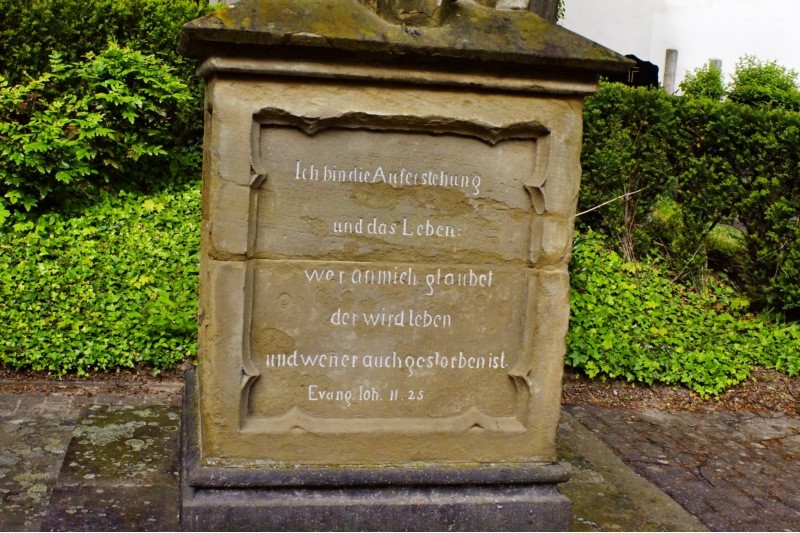 Ich bin die Auferstehung
und das Leben:
wer an mich glaubet
der wird leben
und wener auch gestorben ist.
Evang. Ioh. 11. 25